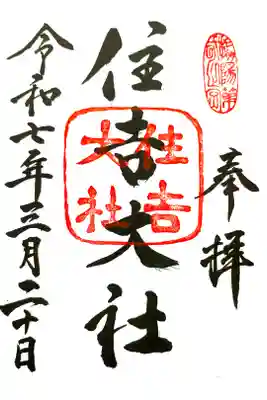 奉拝
住吉大社
住吉大社
令和七年三月二十日